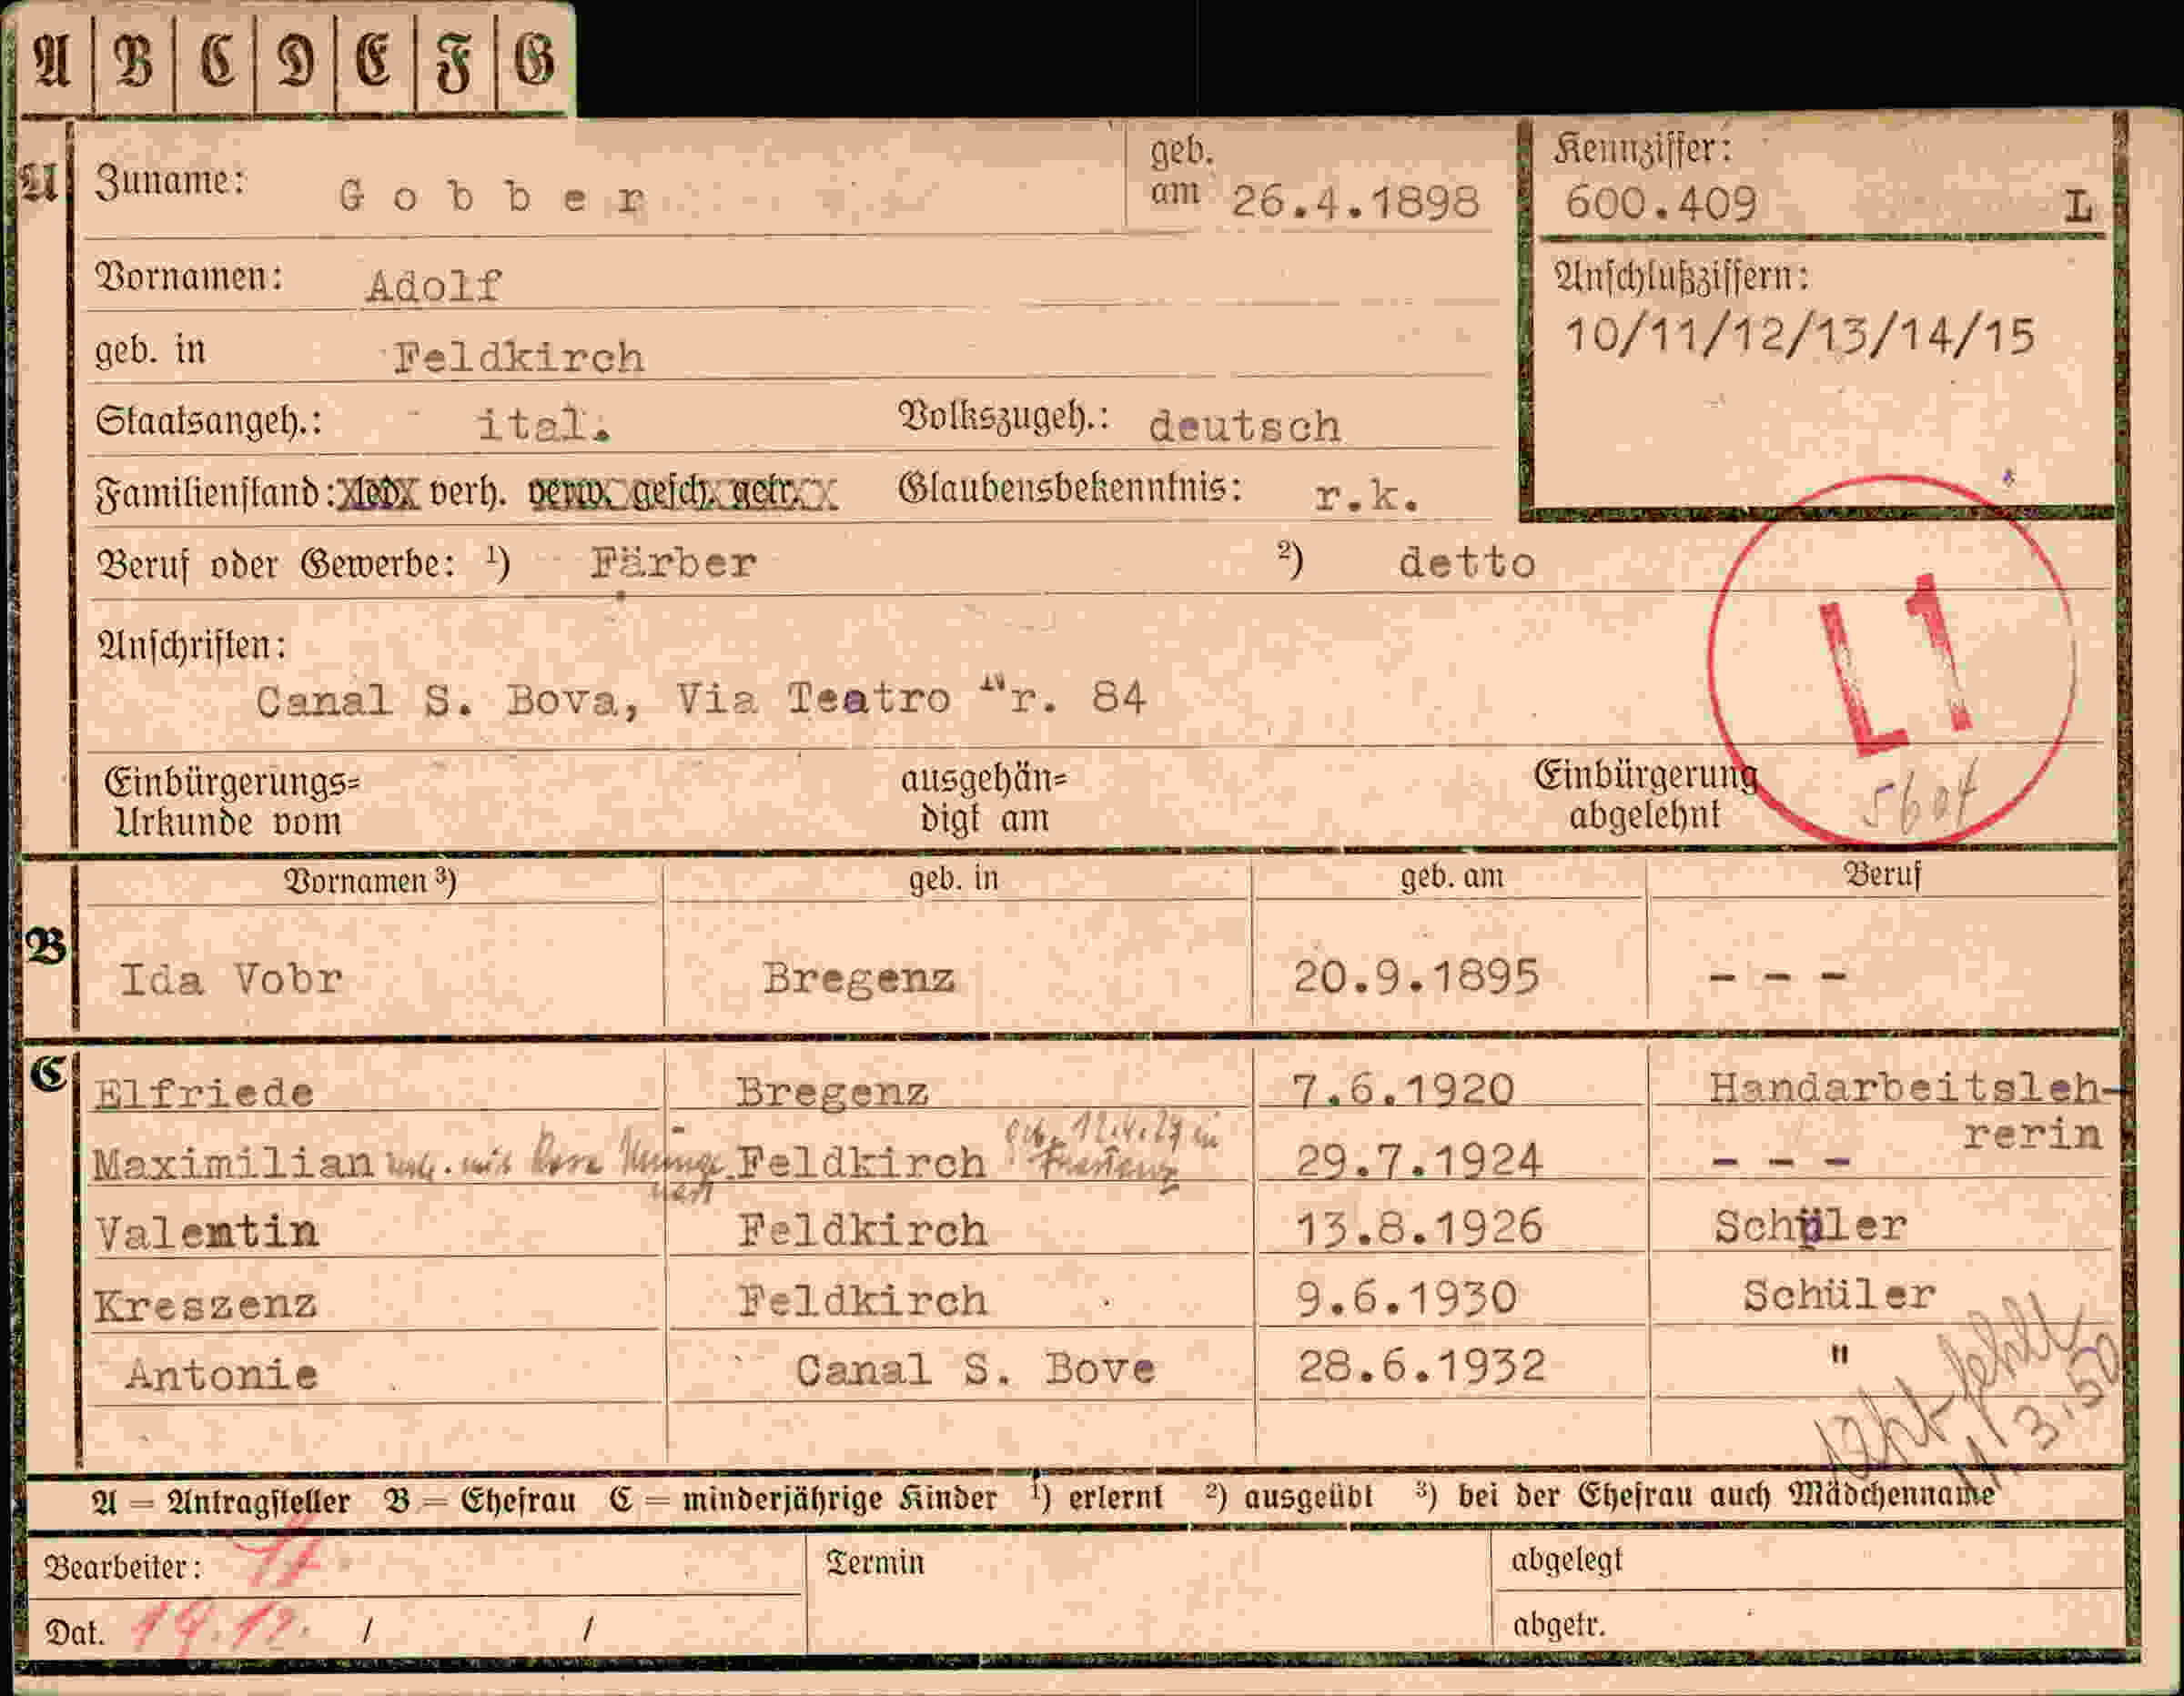 A B C D E F G
A Zuname: Gobber geb. am 26.4.1898
Kennziffer: 600.409 L
Vornamen: Adolf
Anschlußziffern:
10/11/12/13/14/15
geb. in Feldkirch
Staatsangeh.: ital. Volkszugeh.: deutsch
Familienstand: led. verh. verw. gesch. getr. Glaubensbekenntnis: r.k.
Beruf oder Gewerbe: ¹) Färber ²) detto
L1
Anschriften:
Canal S. Bova, Via Teatro Nr. 84
Einbürgerungs= Urkunde vom ausgehän= digt am Einbürgerung abgelehnt 5604
Vornamen ³) geb. in geb. am Beruf
B Ida Vobr Bregenz 20.9.1895 - - -
C Elfriede Bregenz 7.6.1920 Handarbeitsleh-
rerin
Maximilian verh. mit Rosa Feldkirch geb. 12.4.29 in Frastanz 29.7.1924 - - -
Valentin Feldkirch 13.8.1926 Schüler
Kreszenz Feldkirch 9.6.1930 Schüler
Antonie Canal S. Bove 28.6.1932 "
fehlt
3.50
A = Antragsteller B = Ehefrau C = minderjährige Kinder ¹) erlernt ²) ausgeübt ³) bei der Ehefrau auch Mädchenname
Bearbeiter: Termin abgelegt
Dat. 19.12. / / abgetr.